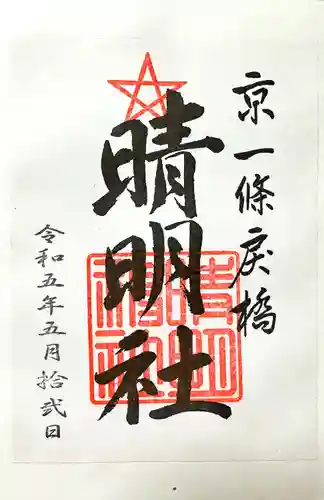 京一條戻橋
晴明社
令和五年五月拾弐日